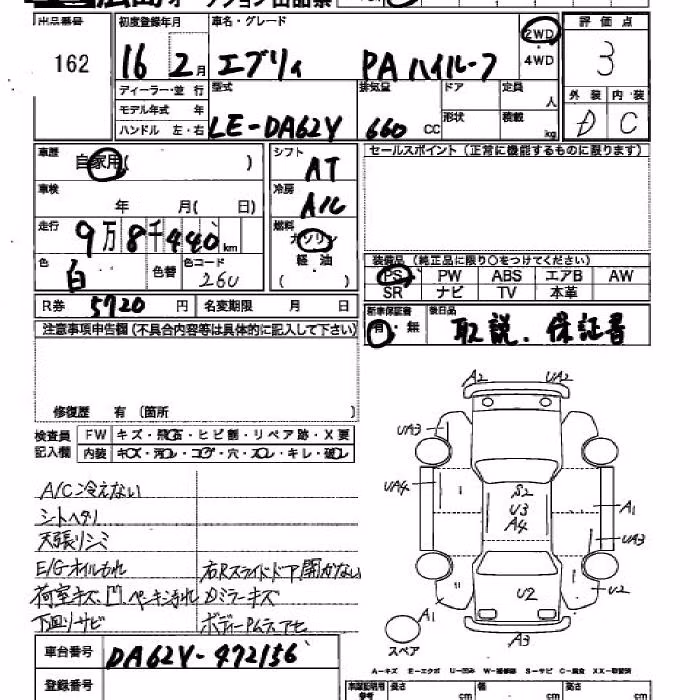 出品番号 162
初度登録年月 16 2月
車名・グレード エブリィ PAハイルーフ
2WD・4WD
評価点 3
ディーラー・並行
モデル年式 年
ハンドル 左・右
型式 LE-DA62V
排気量 660 CC
ドア
形状
定員 人
積載 kg
外装 D
内装 C
車歴 自家用( )
シフト AT
セールスポイント(正常に機能するものに限ります)
車検 年 月( 日)
冷房 A/C
走行 9万8千440km
燃料 ガソリン 軽油 ( )
色 白
色替
色コード 26U
装備品(純正品に限り○をつけてください)
PS PW ABS エアB AW
SR ナビ TV 本革
R券 5720 円
名変期限 月 日
新車保証書 有・無
後日品 取説. 保証書
注意事項申告欄(不具合内容等は具体的に記入して下さい)
修復歴 有(箇所 )
検査員 FW キズ・飛石・ヒビ割・リペア跡・X要
記入欄 内装 キズ・汚レ・コゲ・穴・スレ・キレ・破レ
A/C冷えない
シートヘタリ
天張リシミ
E/Gオイルもれ 右Rスライドドア開かない
荷室キズ、凹、ペンキ汚れ Dミラーキズ
下回リサビ
車台番号 DA62V-472156
登録番号
A2 UA2
UA3
UA4
S2
U3
A4
A1
UA3
U2
U2
A1
A3
スペア
A-キズ E-エクボ U-凹み S-サビ
長さ cm 幅 cm 高さ cm